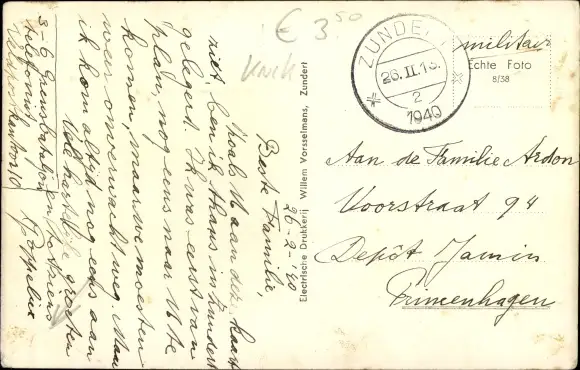 € 3⁵⁰
knik
26-2-'40
Beste Familie,
Zoals U aan deze kaart
ziet, ben ik thans in Zundert
gelegerd. Ik was eerst van
plan, nog eens naar U te
komen, maar we moesten
weer onverwacht weg. Maar
ik kom altijd nog eens aan
Vele hartelijke groeten
3-6 Grensbataljon
telefonist
Veldpost
Electrische Drukkerij Willem Vorsselmans, Zundert
ZUNDERT
26.II.13.
2
1940
militair
Echte Foto
8/38
Aan de Familie Ardon
Voorstraat 94
Depôt Jamin
Princenhagen